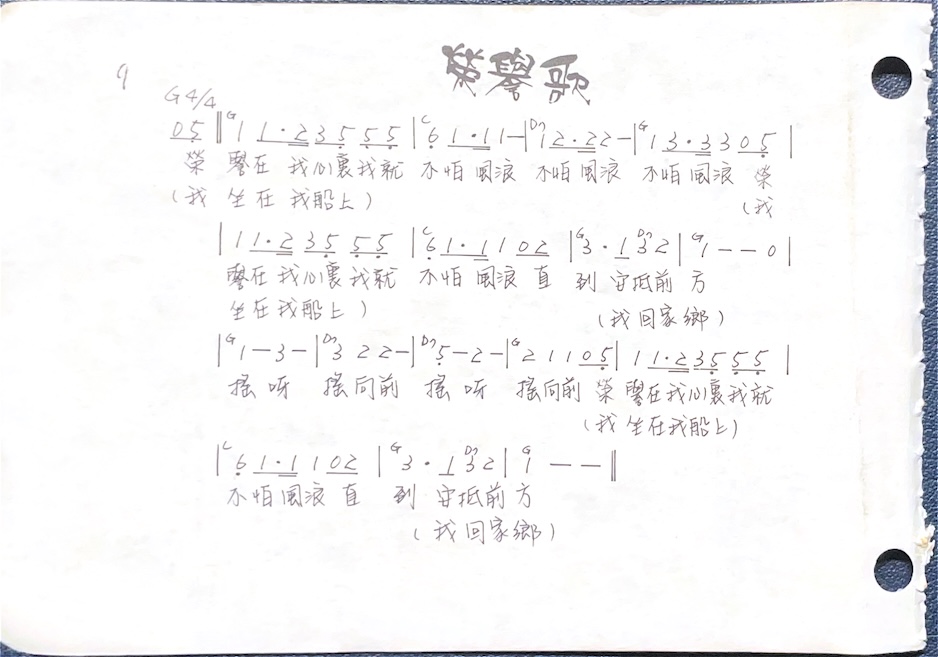 9
榮譽歌
G 4/4
0 5 ‖ G 1 1 · 2 3 5 5 5 | C 6 1 · 1 1 – | D7 2 · 2 2 – | G 1 3 · 3 3 0 5 |
榮 譽在 我心裏我就 不怕風浪 不怕風浪 不怕風浪 榮
(我 坐在 我船上) (我
| 1 1 · 2 3 5 5 5 | C 6 1 · 1 1 0 2 | G 3 · 1 D7 3 2 | G 1 – – 0 |
譽在我心裏我就 不怕風浪 直 到 安抵前方
坐在我船上) (我回家鄉)
| G 1 – 3 – | D7 3 2 2 – | D7 5 – 2 – | G 2 1 1 0 5 | 1 1 · 2 3 5 5 5 |
搖呀 搖向前 搖呀 搖向前 榮 譽在我心裏我就
(我 坐在我船上)
| C 6 1 · 1 1 0 2 | G 3 · 1 D7 3 2 | G 1 – – ‖
不怕風浪 直 到 安抵前方
(我回家鄉)